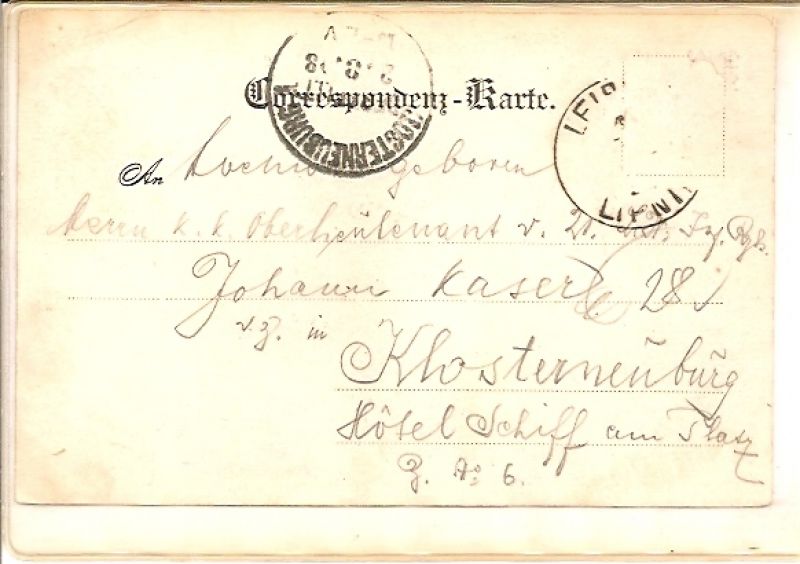 Correspondenz-Karte.
KLOSTERNEUBURG
LEIP
LIPNI
An Hochwolgeboren
Herrn k. k. Oberlieutenant v. 21.
Johann Kaserl 28
v. z. in
Klosterneuburg
Hôtel Schiff am Platz
Z. No 6.